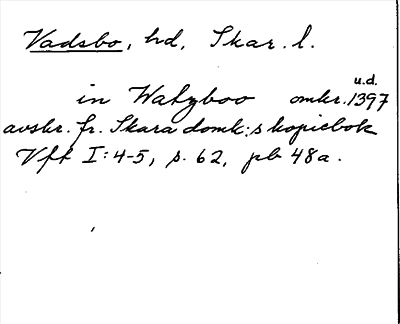 Vadsbo, hd, Skar. l.
u.d.
in Watzboo omkr. 1397
avskr. fr. Skara domk:s kopiebok
Vft I:4-5, s. 62, pb 48a.